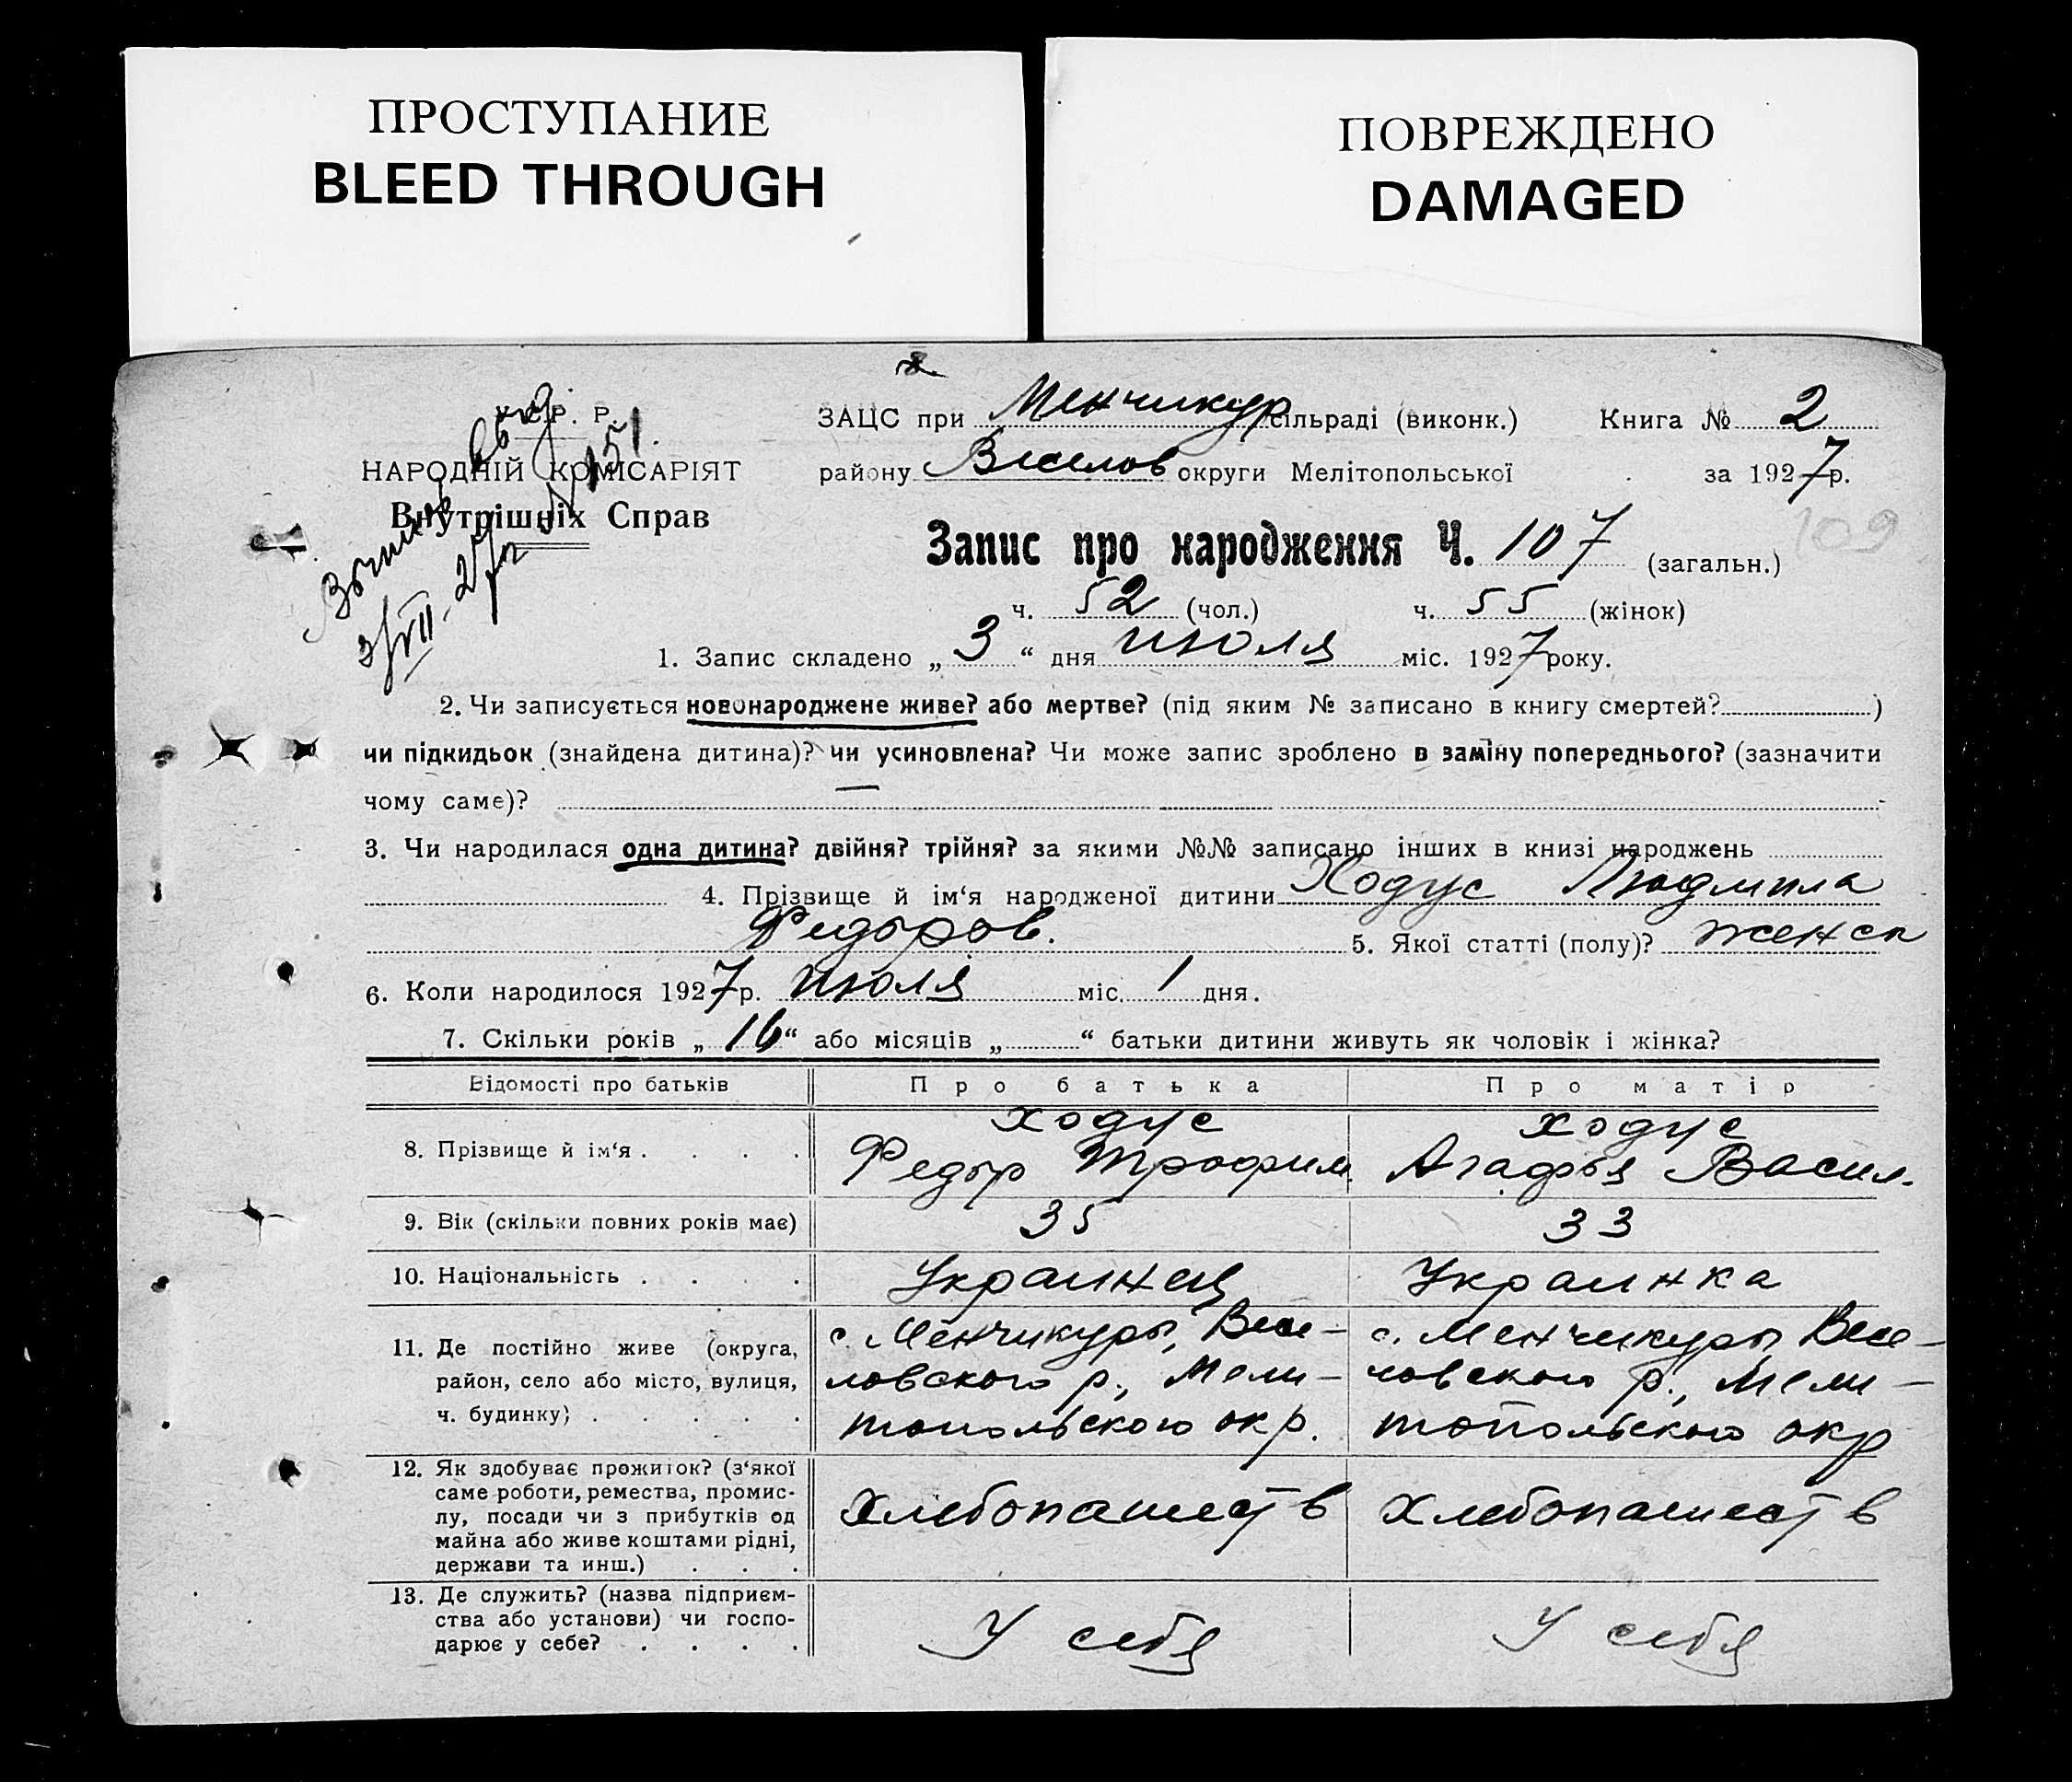 ПРОСТУПАНИЕ
BLEED THROUGH
ПОВРЕЖДЕНО
DAMAGED
У.С.Р.Р.
НАРОДНІЙ КОМІСАРІЯТ
Внутрішніх Справ
№ 151.
ЗАЦС при Менчикур сільраді (виконк.) Книга № 2
району Веселов округи Мелітопольської за 1927 р.
Запис про народження Ч. 107 (загальн.) 109
ч. 52 (чол.) ч. 55 (жінок)
1. Запис складено „ 3 “ дня июля міс. 1927 року.
2. Чи записується новонароджене живе? або мертве? (під яким № записано в книгу смертей? )
чи підкидьок (знайдена дитина)? чи усиновлена? Чи може запис зроблено в заміну попереднього? (зазначити
чому саме)? —
3. Чи народилася одна дитина? двійня? трійня? за якими №№ записано інших в книзі народжень
4. Прізвище й ім‘я народженої дитини Ходус Людмила
Федоров. 5. Якої статті (полу)? женск
6. Коли народилося 1927 р. июля міс. 1 дня.
7. Скільки років „ 16 “ або місяців „ “ батьки дитини живуть як чоловік і жінка?
Відомості про батьків Про батька Про матір
8. Прізвище й ім‘я . . . . Ходус Ходус
Федор Трофим. Агафья Васил.
9. Вік (скільки повних років має) 35 33
10. Національність . . . . Украинец Украинка
11. Де постійно живе (округа, с. Менчикуры, Весе- с. Менчикуры Весе-
район, село або місто, вулиця, ловского р., Мели- ловского р., Мели-
ч. будинку) . . . . . топольского окр. топольского окр
12. Як здобуває прожиток? (з‘якої
саме роботи, ремества, промис-
лу, посади чи з прибутків од Хлебопашеств Хлебопашеств
майна або живе коштами рідні,
держави та инш.) . . .
13. Де служить? (назва підприєм-
ства або установи) чи госпо- У себя У себя
дарює у себе? . . . .